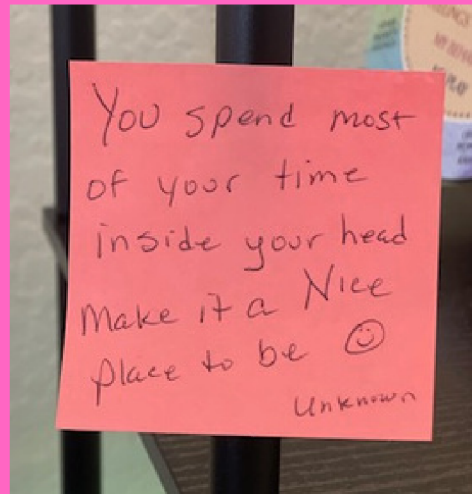 You spend most
of your time
inside your head
Make it a Nice
place to be ☺
Unknown